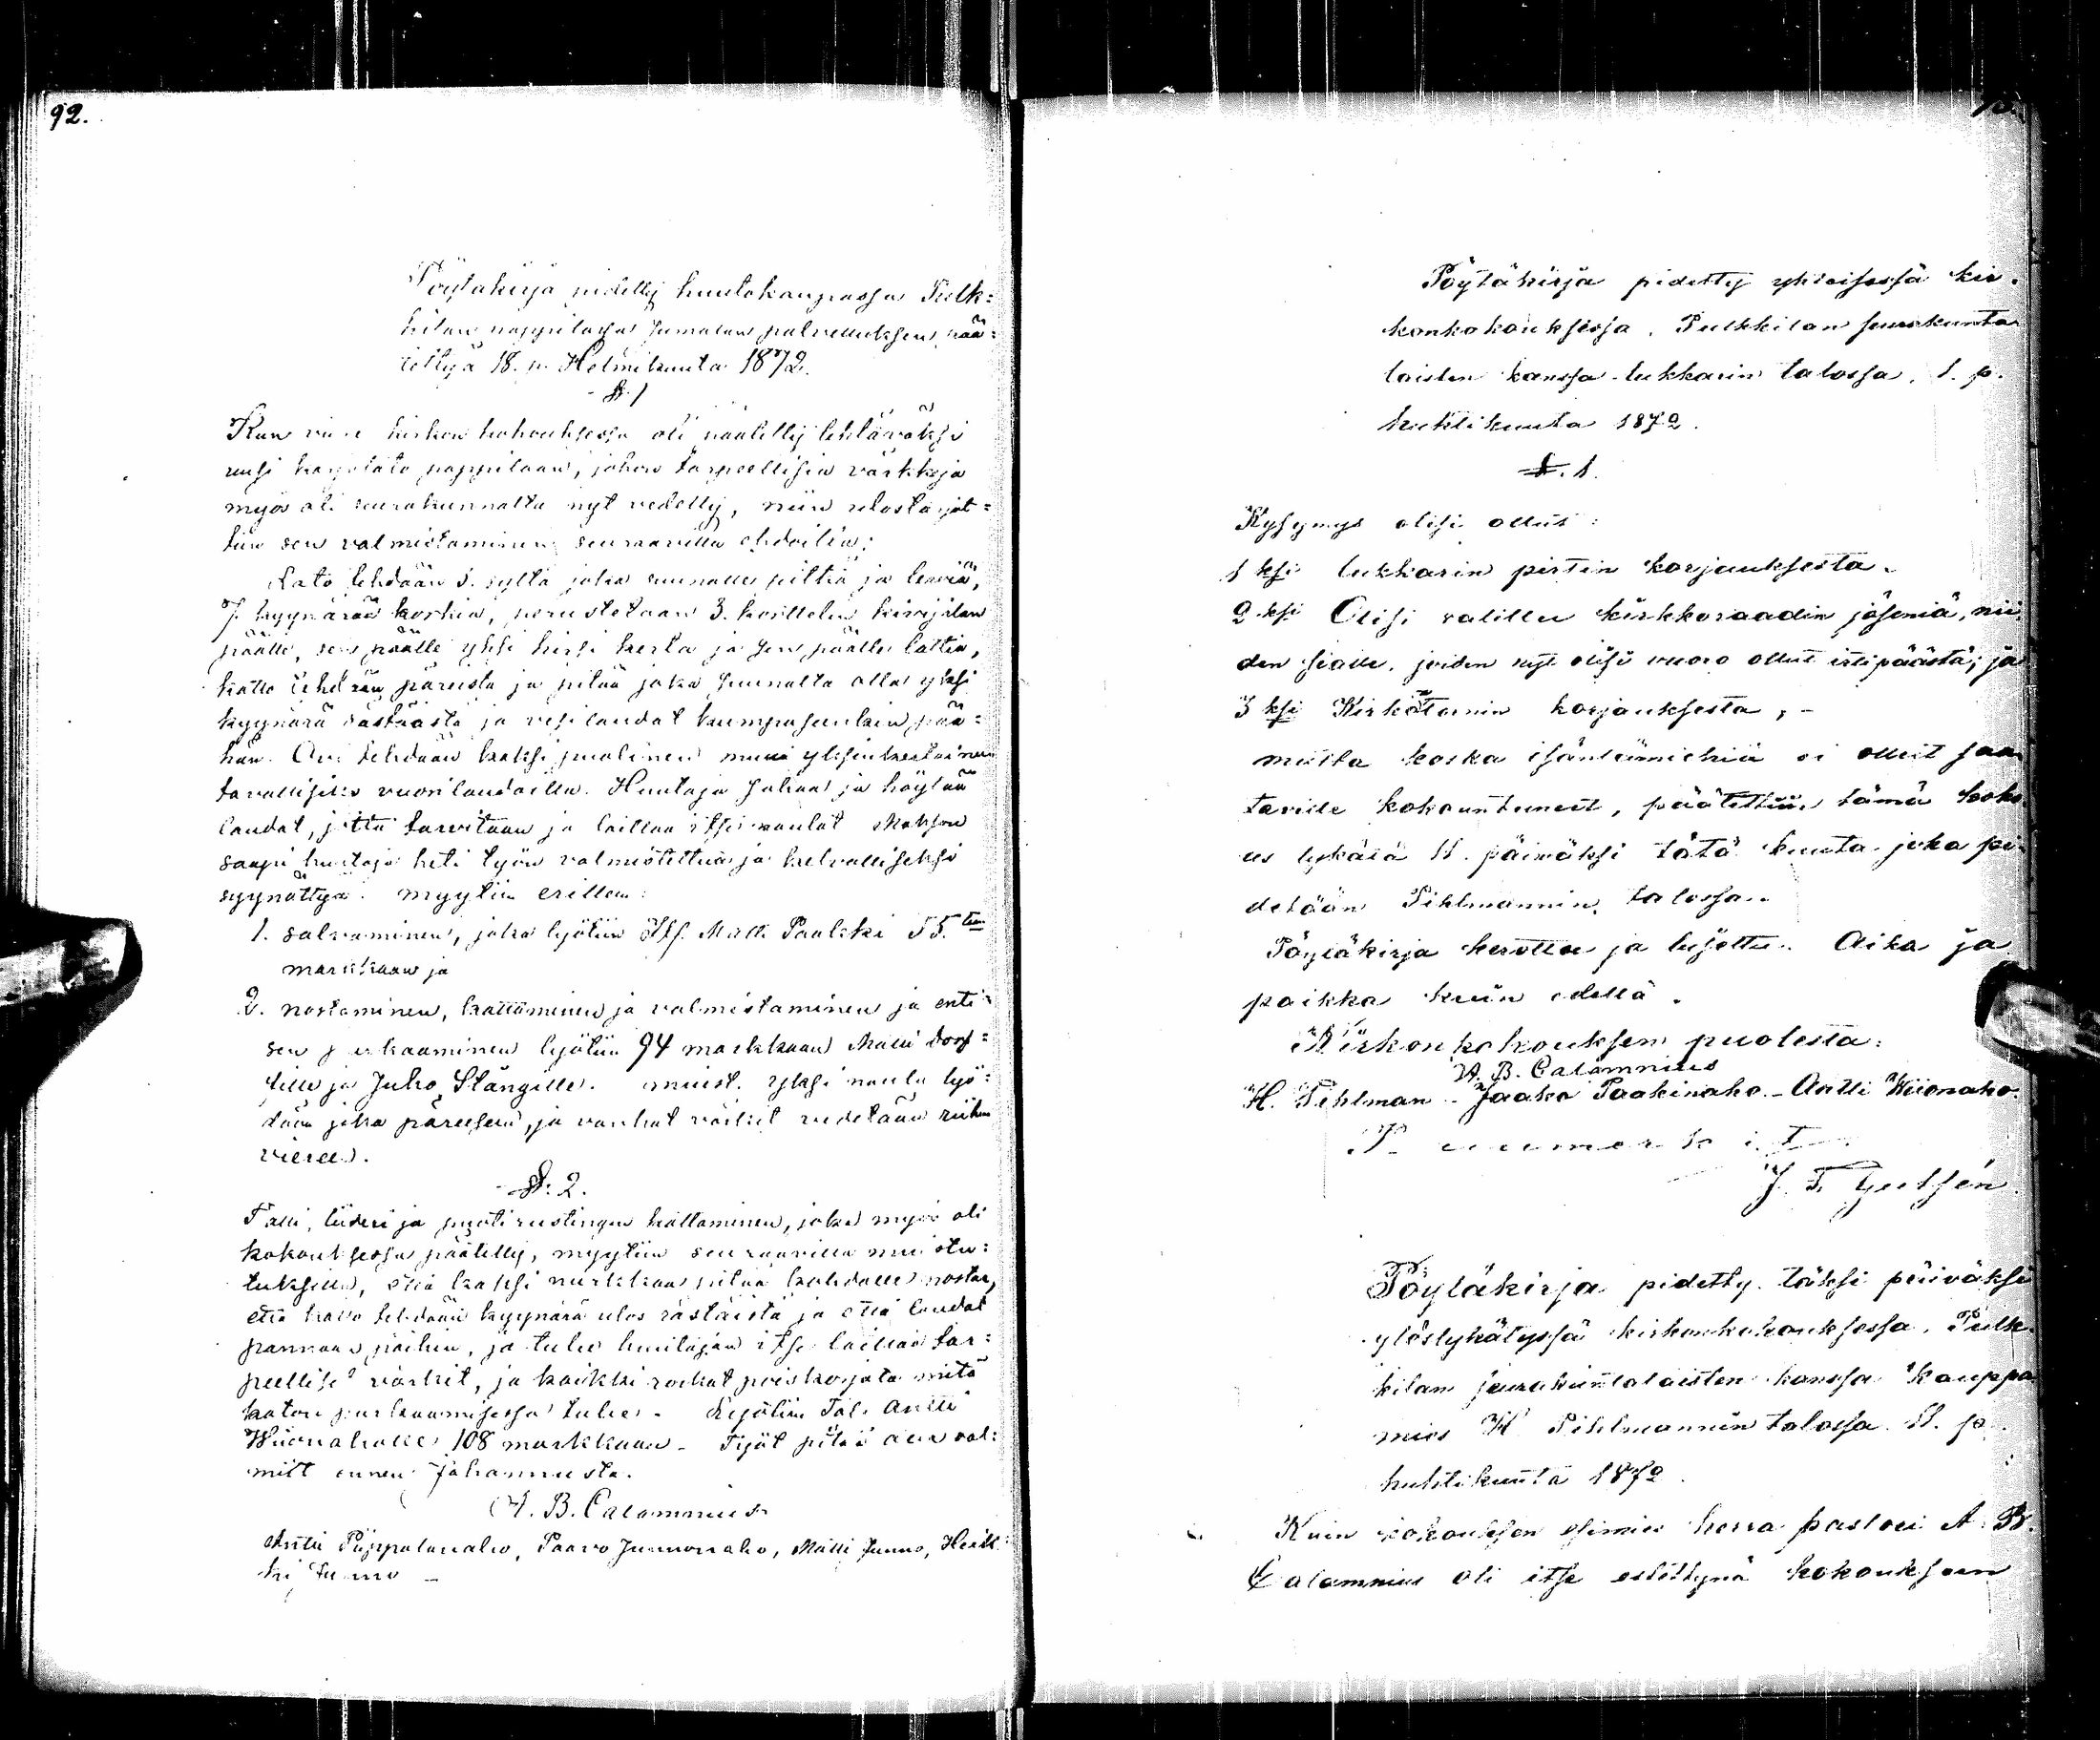 92.
Pöytäkirja pidetty huutokaupassa Pulk=
kilan pappilassa Jumalan palveluksen pää=
tettyä 18. p. Helmikuuta 1872.
§. 1
Kun viime kirkon kokouksessa oli päätetty tehtäväksi
uusi  pappilaan, johon tarpeellisia värkkejä
myös oli seurakunnalta nyt vedetty, niin ulostarjot=
tiin sen valmistaminen seuraavilla ehdoilla:
Lato tehdään 5. syltä joka suunalle pittiä ja leviä,
7. kyynärää korkia, perustetaan 3. korttelin kivijalan
päälle, sen päälle yksi hirsi kerta ja sen päälle lattia,
katto tehdään päreistä ja pitää joka suunalta olla yksi
kyynärä rästäästä ja vesilaudat kumpaseenkin pää=
hän. Ovi tehdään kaksipuolinen muu yksinkertainen
tavallisilla vuorilaudoilla. Huutaja sahaa ja höylää
laudat, joita tarvitaan ja laittaa itse naulat Makson
saapi huutaja heti työn valmistettua ja kelvolliseksi
syynättyä. Myytiin erillään:
1. salvaminen, joka lyötiin Itf. Matti Paalaki 55.ten
markkaan ja
2. nostaminen, kattaminen ja valmistaminen ja enti=
sen purkaaminen lyötiin 94 markkaan Matti Dorf=
 ja Juho Stångille. muist. yksi naula lyö=
dään joka päreeseen, ja vanhat värkit vedetään riihen
viereen.
§. 2.
Talli, liideri ja puotirustingin kattaminen, joka myös oli
kokouksessa päätetty, myytiin seuraavilla muistu=
tuksilla, että kaksi nurkkaa pitää kohdalle nostaa,
että katto tehdään kyynärä ulos rästäistä ja että laudat
pannaan päihin, ja tulee huutajan itse laittaa tar=
peelliset värkit, ja kaikki roskat pois korjata mitä
katon purkaamisessa tulee. Lyötiin Tal. Antti
Wiionaholle 108 markkaan. Työt pitää olla val=
mitt ennen Johannusta.
A. B. Calamnius
Antti Piippolanaho, Paavo Junnonaho, Matti Junno, Heik=
ki Junno _
Pöytäkirja pidetty yhteisessä kir=
konkokouksessa, Pulkkilan seurakunta
laisten kanssa lukkarin talossa, 1. p.
huhtikuuta 1872.
§. 1.
Kysymys olisi ollut:
1 ksi lukkarin pirtin korjauksesta.
2 ksi Olisi valittu kirkkoraadin jäseniä, nii
den sialle, joiden nyt olisi vuoro ollut irtipäästä; ja
3 ksi Kirkotarnin korjauksesta, -
mutta koska isäntämiehiä ei ollut saa
taville kokountuneet, päätettiin tämä koko
us lykätä 11. päiväksi tätä kuuta, joka pi
detään Pihlmannin talossa.
Pöytäkirja kerottu ja lujettu. Aika ja
paikka kuin edellä.
Kirkonkokouksen puolesta:
A. B. Calamnius
H. Pihlman - Jaako Paakinaho - Antti Wiionaho.
Puumerkit
Pöytäkirja pidetty täksi päiväksi
ylöslykätyssä kirkonkokouksessa, Pulk
kilan seurakuntalaisten kanssa Kauppa
mies H Pihlmannin talossa 11. p.
huhtikuuta 1872.
Kuin kokouksen esimies herra pastori A. B.
Calamnius oli itse estettynä kokouksen